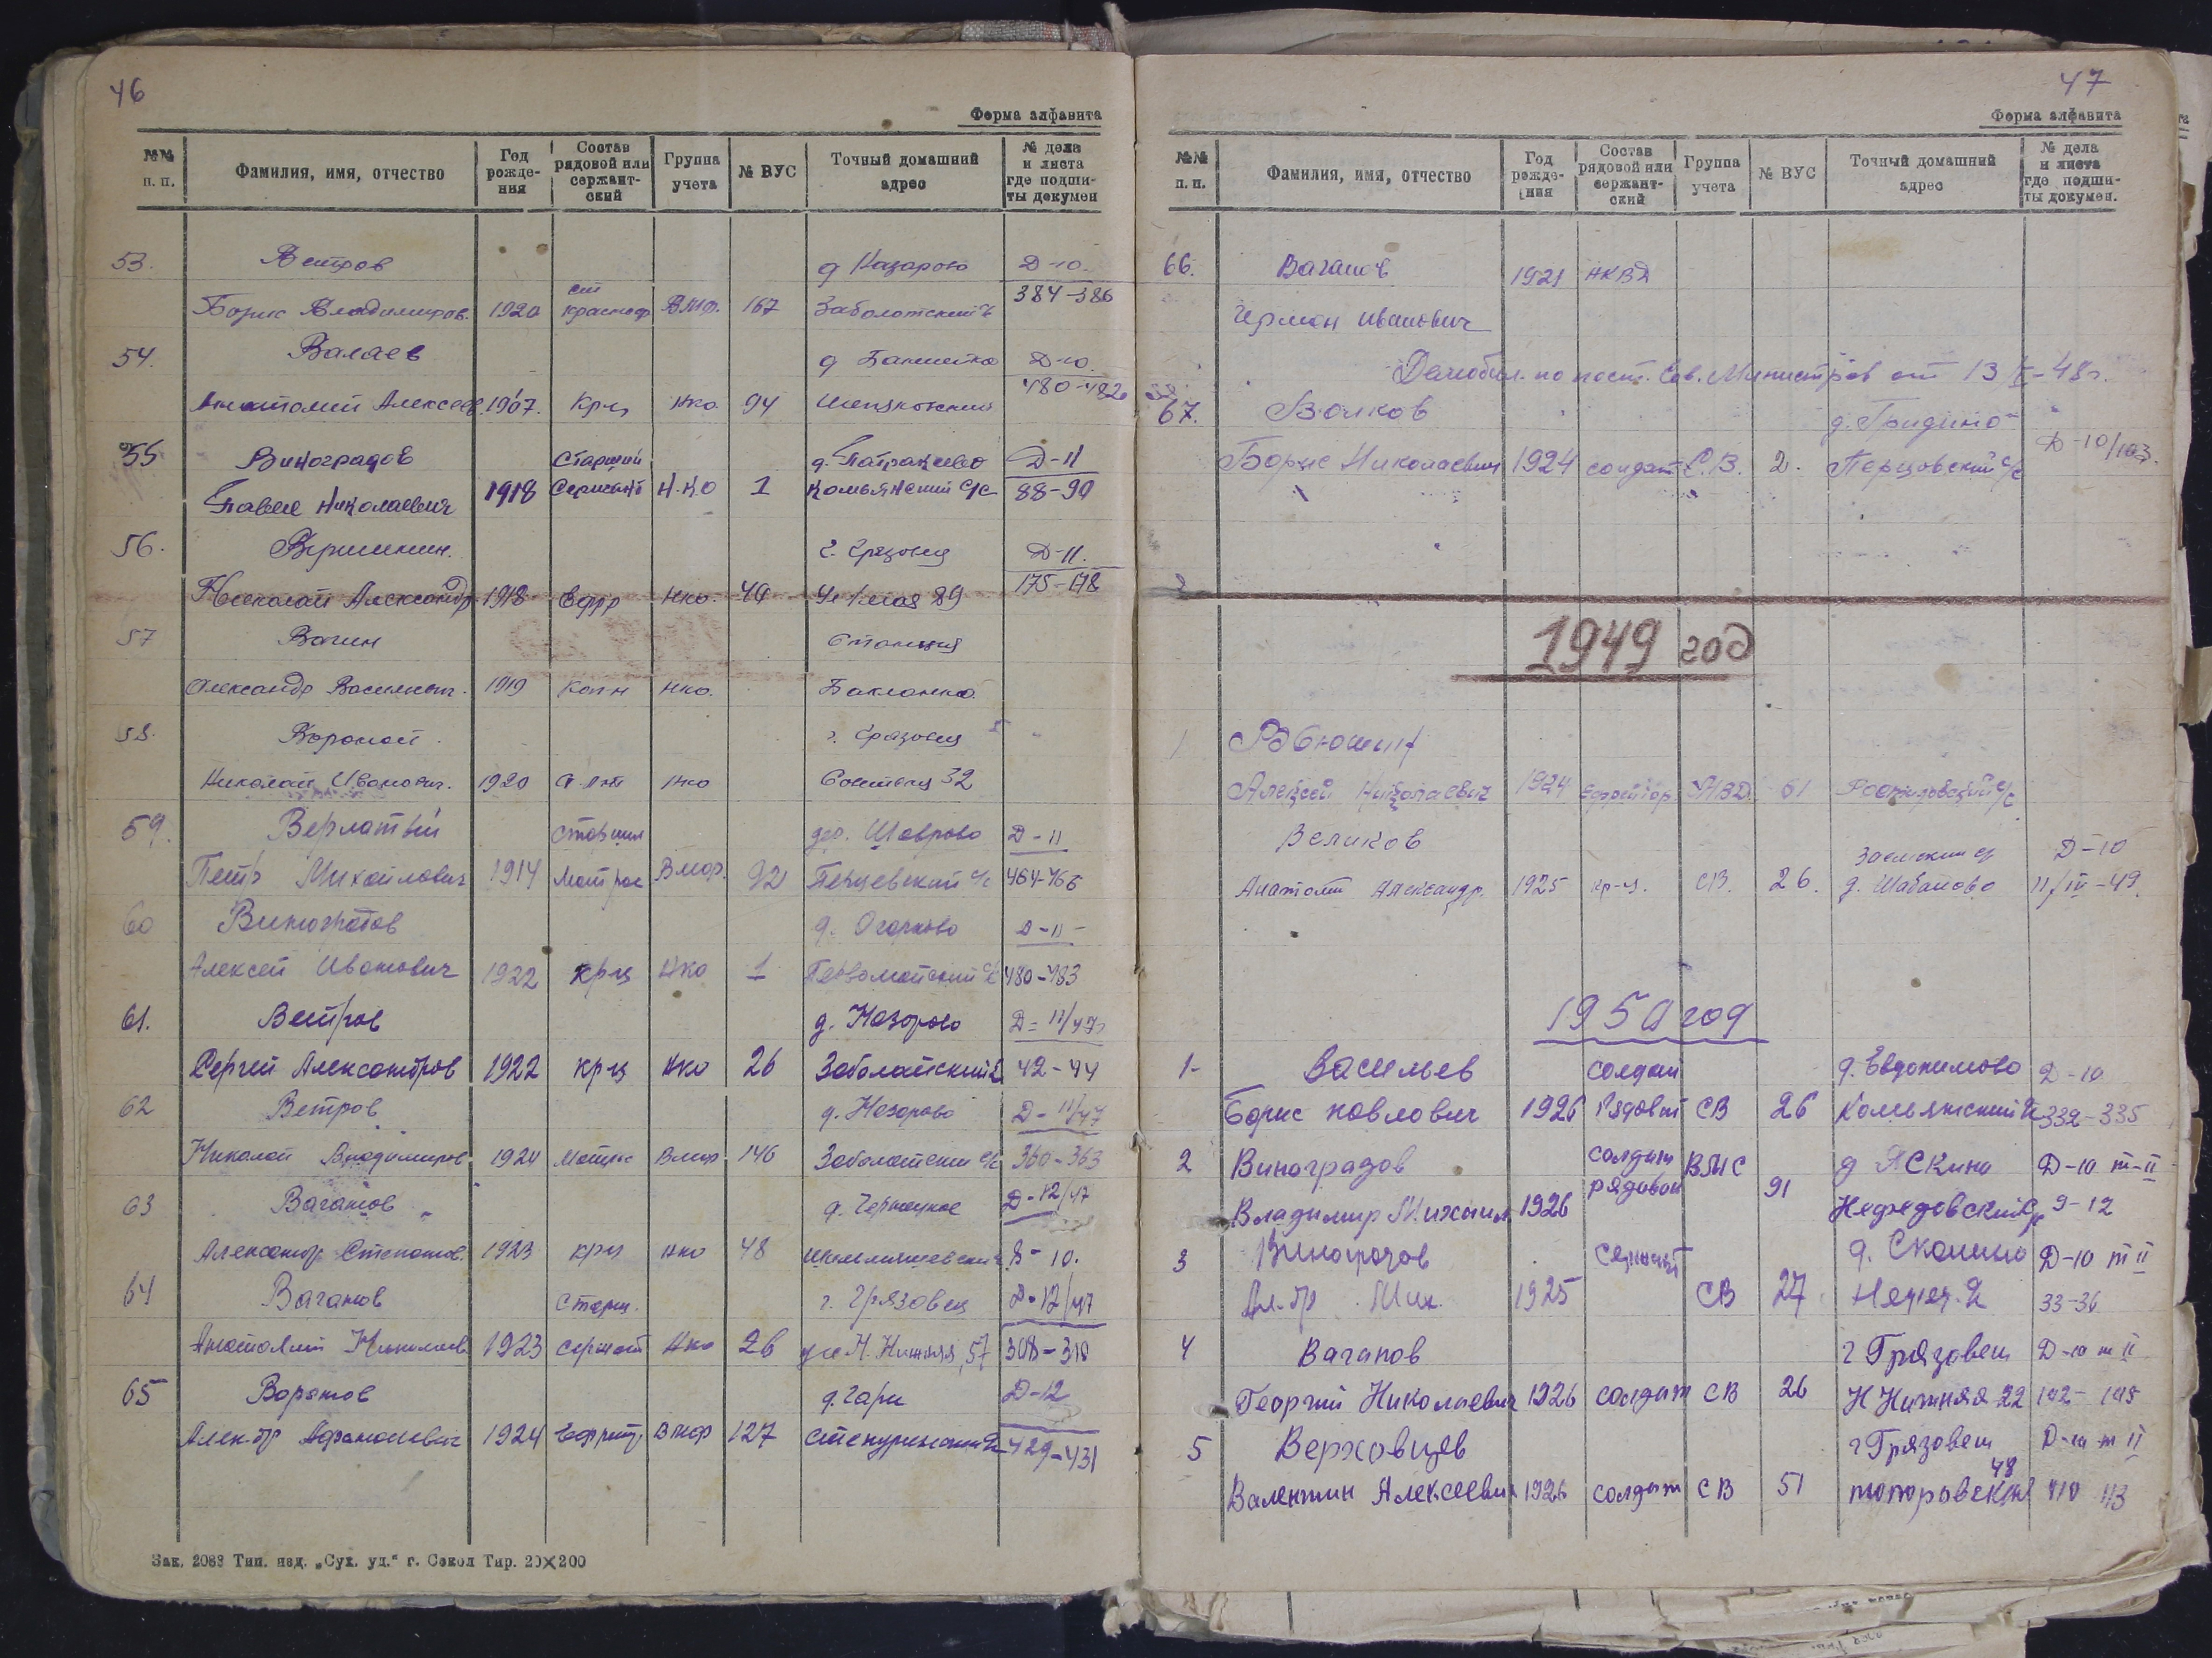 46
Форма алфавита
№№ п. п. Фамилия, имя, отчество Год рожде- ния Состав рядовой или сержант- ский Группа учета № ВУС Точный домашний адрес № дела и листа где подши- ты докумен
53. Ветров д Назарово Д-10.
Борис Владимиров. 1920 ст краснофл Вмф. 167 Заболотский с/с 384-386
54. Валаев д Д-10.
Анатолий Алексеев. 1907. Кр-ц Нко. 94 480-482
55 Виноградов Старший д. Патракеево Д-11
Павел Николаевич 1918 Сержант Н.КО 1 Комьянский с/с 88-90
56. Вершинин. г. Грязовец Д-11.
Николай Александр 1918 Ефр Нко. 40 89 175-178
57 Вагин Станция
Александр Васильевич. 1919 Кап-н Нко. Бакланка
58. Вороной. г. Грязовец
Николай Иванович. 1920 Нко 32
59. Верлатый старший дер. Шаврово Д-11
Петр Михайлович 1914 матрос Вмор. 92 Перцевский с/с 464-466
60 Виноградов д. Огарково Д-11-
Алексей Иванович 1922 кр-ц Нко 1 Первомайский с/с 480-483
61. Ветров д. Назорово Д-11/47г
Сергей Александров 1922 кр-ц Нко 26 Заболатский с/с 42-44
62 Ветров д. Назорово Д-11/47
Николай Владимиров 1924 матрос Вмор 146 Заболатский с/с 360-363
63 Ваганов д. Чернецкое Д-12/47
Александр Степанов. 1923 кр-ц нко 48 8-10.
64 Ваганов Старш. г. Грязовец Д-12/47
Анатолий Николаев. 1923 сержант Нко 26 ул Н. Нижняя, 57 308-310
65 Воронов д. Гари Д-12
Алек-др Афанасьевич 1924 Ефрейт. Вмор 127 429-431
Зак. 2088 Тип. изд. „Сух. уд.“ г. Сокол Тир. 20×200
47
Форма алфавита
№№ п. п. Фамилия, имя, отчество Год рожде- ния Состав рядовой или сержант- ский Группа учета № ВУС Точный домашний адрес № дела и листа где подши- ты докумен.
66. Ваганов 1921 НКВД
Герман Иванович
Демобил. по пост. Сов. Министров от 13/-48г.
67. Волков д. Гридино
Борис Николаевич 1924 солдат С.В. 2. Перцовский с/с Д-10/103.
1949 год
1
Алексей Николаевич 1924 ефрейтор МВД 61 Ростиловский с/с
Великов Заемский с/с Д-10
Анатолий Александр. 1925 кр-ц. СВ. 26. д. Шабаново 11/III-49.
1950 год
1- Васильев солдат д. Евдокимово Д-10
Борис Павлович 1926 Рядовой СВ 26 Комьянский с/с 332-335
2 Виноградов солдат ВМС д Яскино Д-10 т-II
Владимир Михаил 1926 рядовой 91 Нефедовский с/с 9-12
3 Виноградов сержант д. Скалино Д-10 т II
Ал-др Мих. 1925 СВ 27 33-36
4 Ваганов г Грязовец Д-10 т II
Георгий Николаевич 1926 солдат СВ 26 Н Нижняя 22 142-145
5 Верховцев г Грязовец Д-10 т II
48
Валентин Алексеевич 1926 солдат СВ 51 топоровская 110 113